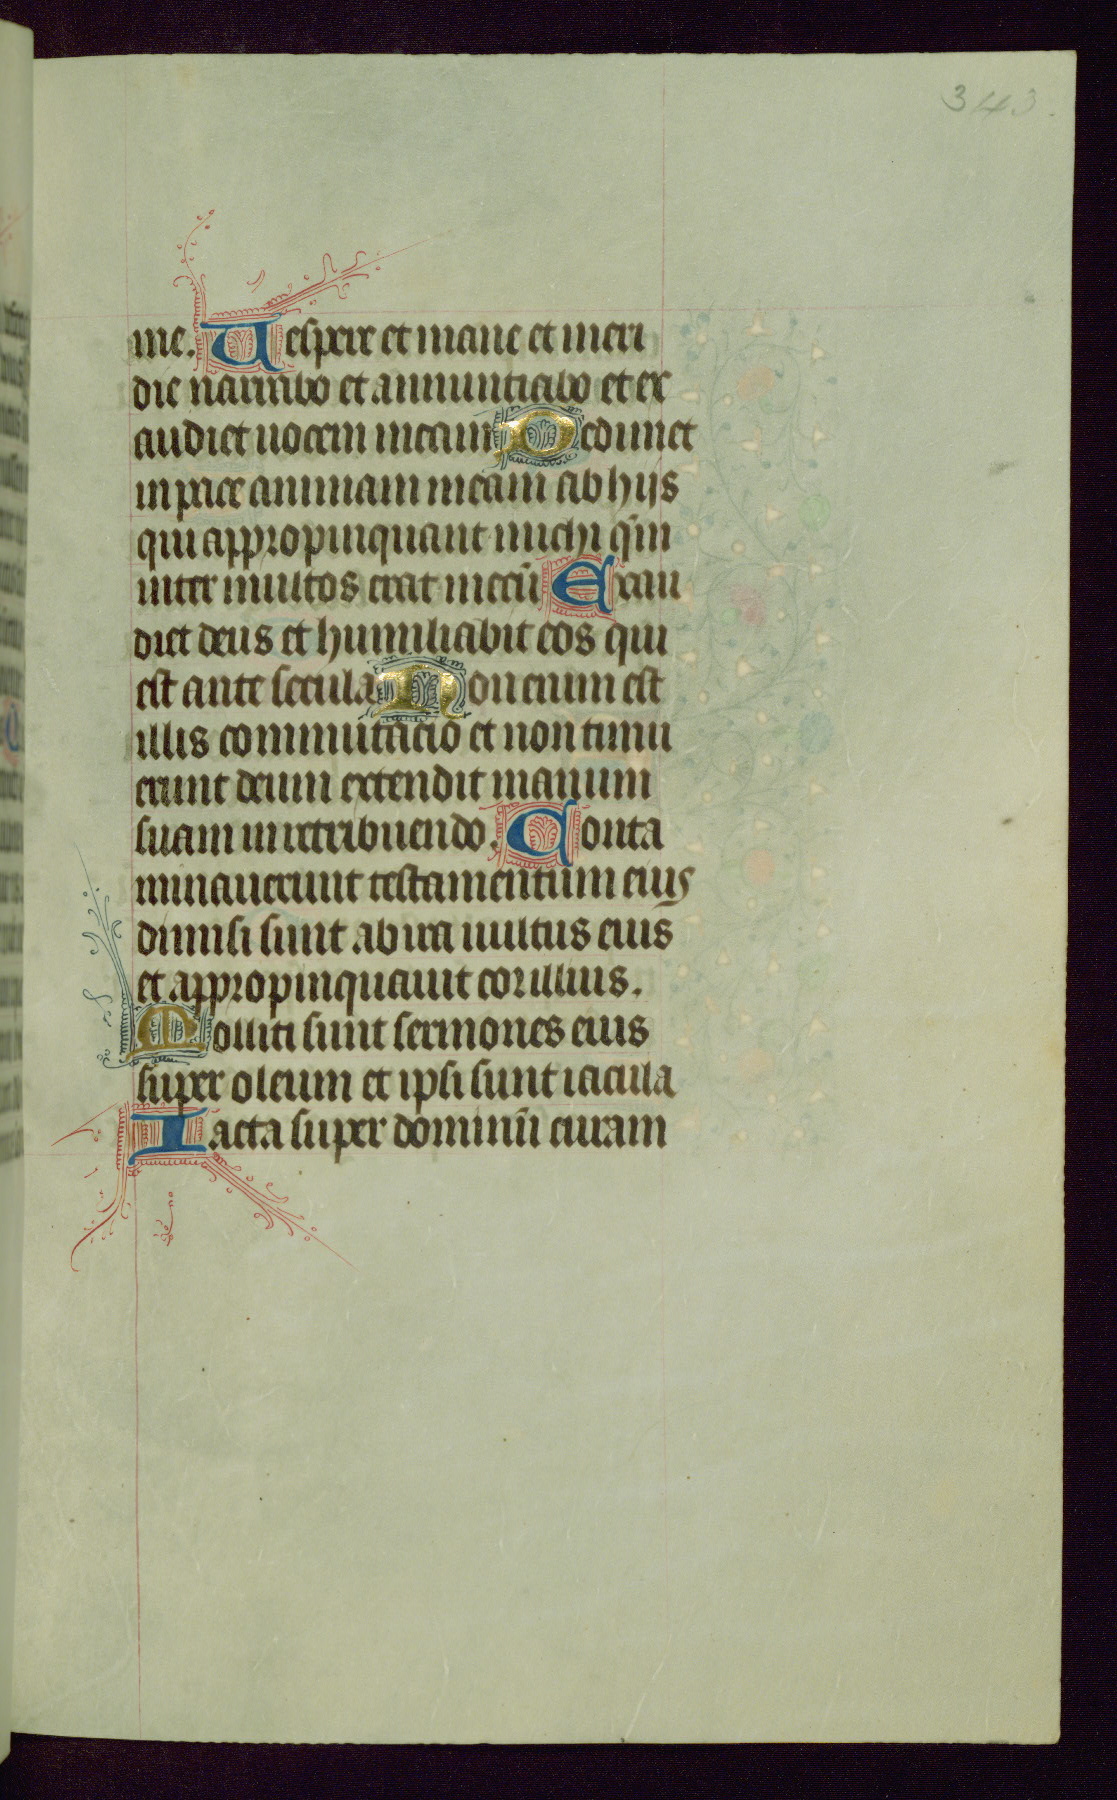 343.
me. Uespere et mane et meri
die narrabo et annunciabo et ex
audiet uocem meam Redimet
in pace animam meam ab hijs
qui appropinquant michi qm̄
inter multos erat mecū Exau
diet deus et humiliabit eos qui
est ante secula Non enim est
illis commutacio et non timu
erunt deum extendit manum
suam in retribuendo. Conta
minauerunt testamentum eius
diuisi sunt ab ira uultus eius
et appropinquauit cor illius.
Molliti sunt sermones eius
super oleum et ipsi sunt iacula
Iacta super dominū curam